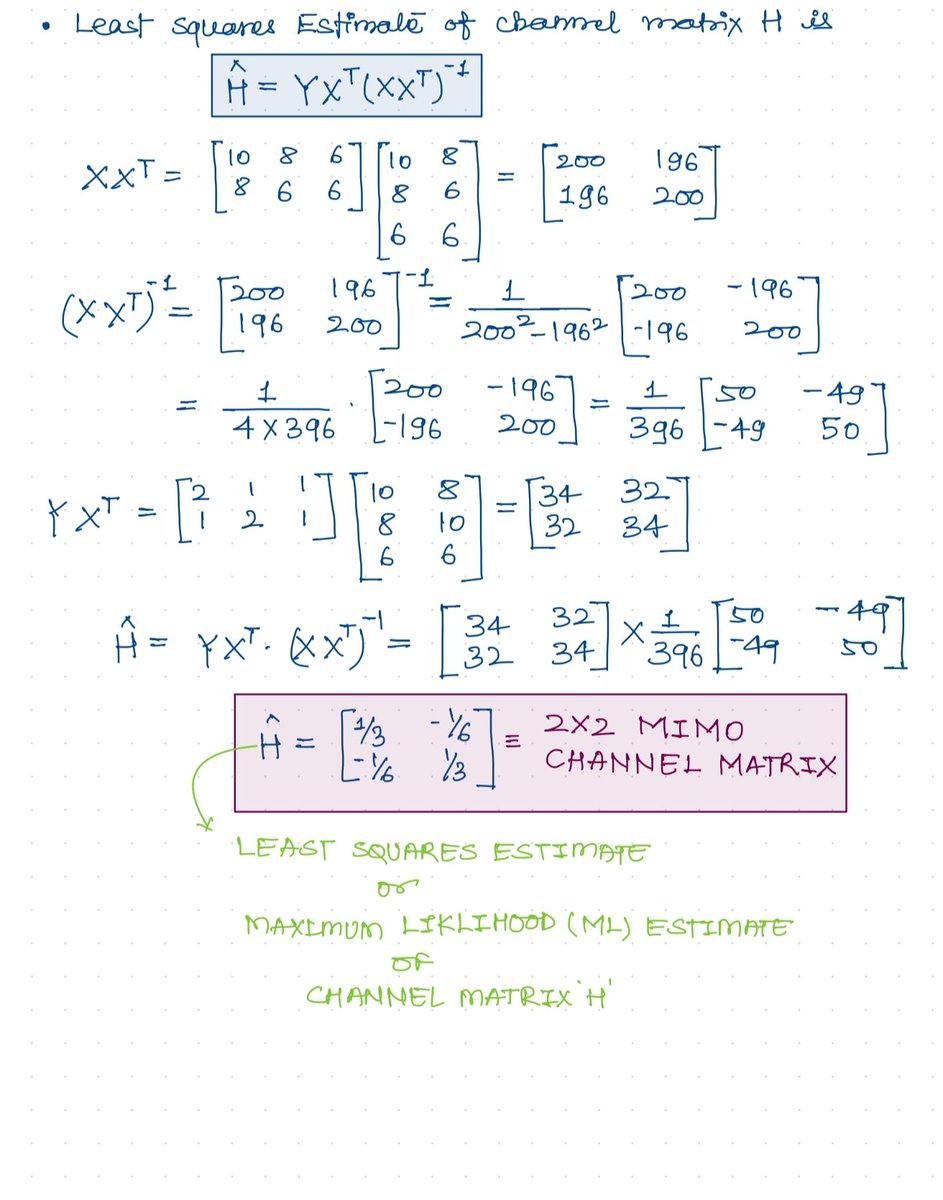 • Least squares Estimate of channel matrix H is
Ĥ = YXᵀ(XXᵀ)⁻¹
XXᵀ = [10 8 6; 8 6 6] [10 8; 8 6; 6 6] = [200 196; 196 200]
(XXᵀ)⁻¹ = [200 196; 196 200]⁻¹ = 1/(200² - 196²) [200 -196; -196 200]
= 1/(4×396) · [200 -196; -196 200] = 1/396 [50 -49; -49 50]
YXᵀ = [2 1 1; 1 2 1] [10 8; 8 10; 6 6] = [34 32; 32 34]
Ĥ = YXᵀ · (XXᵀ)⁻¹ = [34 32; 32 34] × 1/396 [50 -49; -49 50]
Ĥ = [1/3 -1/6; -1/6 1/3] ≡ 2X2 MIMO
CHANNEL MATRIX
LEAST SQUARES ESTIMATE
or
MAXIMUM LIKLIHOOD (ML) ESTIMATE
OF
CHANNEL MATRIX 'H'